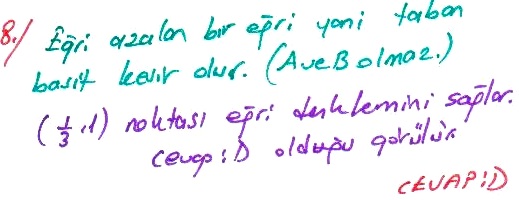 8./ Eğri azalan bir eğri yani taban
basit kesir olur. (A ve B olmaz.)
(1/3, 1) noktası eğri denklemini sağlar.
Cevap: D olduğu görülür.
CEVAP: D